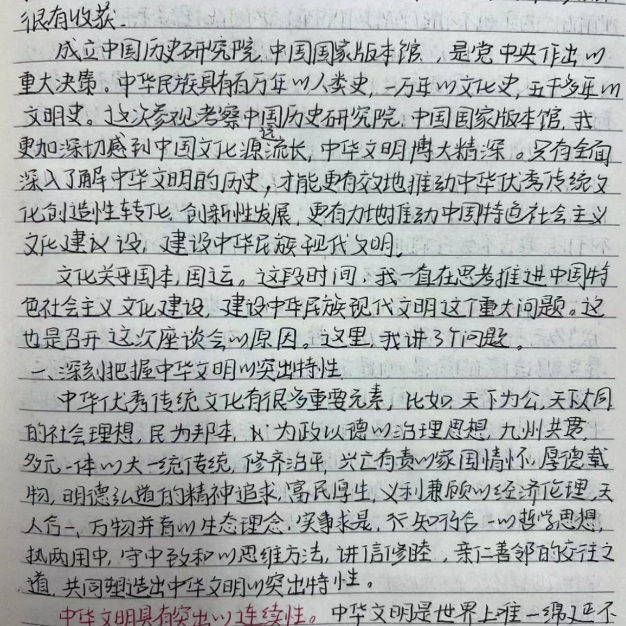 很有收获.
成立中国历史研究院、中国国家版本馆，是党中央作出的
重大决策。中华民族具有百万年的人类史，一万年的文化史，五千多年的
文明史。这次参观考察中国历史研究院、中国国家版本馆，我
更加深切感到中国文化源远流长，中华文明博大精深。只有全面
深入了解中华文明的历史，才能更有效地推动中华优秀传统文
化创造性转化、创新性发展，更有力地推动中国特色社会主义
文化建议设，建设中华民族现代文明。
文化关乎国本，国运。这段时间，我一直在思考推进中国特
色社会主义文化建设，建设中华民族现代文明这个重大问题。这
也是召开这次座谈会的原因。这里，我讲3个问题。
一、深刻把握中华文明的突出特性
中华优秀传统文化有很多重要元素，比如，天下为公，天下大同
的社会理想，民为邦本，为政以德的治理思想，九州共贯，
多元一体的大一统传统，修齐治平，兴亡有责的家国情怀，厚德载
物，明德弘道的精神追求，富民厚生，义利兼顾的经济伦理，天
人合一，万物并育的生态理念，实事求是，知行合一的哲学思想，
执两用中，守中致和的思维方法，讲信修睦，亲仁善邻的交往之
道，共同塑造出中华文明的突出特性。
中华文明具有突出的连续性。中华文明是世界上唯一绵延不